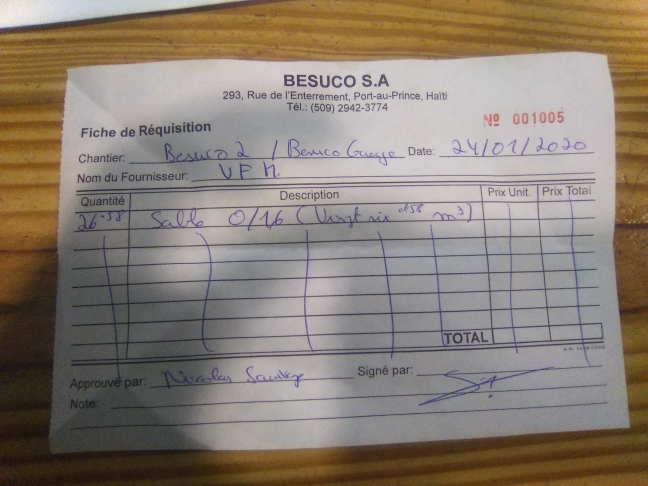 BESUCO S.A
293, Rue de l'Enterrement, Port-au-Prince, Haïti
Tél.: (509) 2942-3774
Nº 001005
Fiche de Réquisition
Chantier: Besuco 2 / Besuco Garage Date: 24/01/2020
Nom du Fournisseur: VPM
Quantité Description Prix Unit. Prix Total
26.58 Sable 0/1,6 (Vingt six .58 m³)
TOTAL
Approuvé par: Nicolas Signé par:
Note: